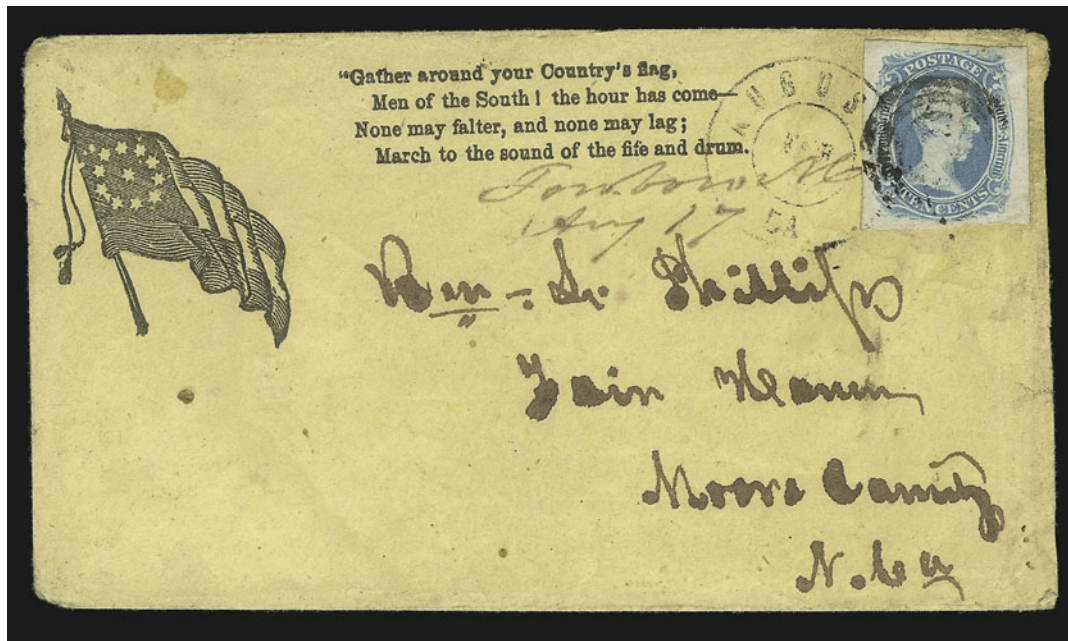 "Gather around your Country's flag,
Men of the South! the hour has come—
None may falter, and none may lag;
March to the sound of the fife and drum.
AUGUS
GA
POSTAGE
TEN CENTS
Aug 17
Rev. Dr. Phillips
Fair Haven
Moore County
N. Ca